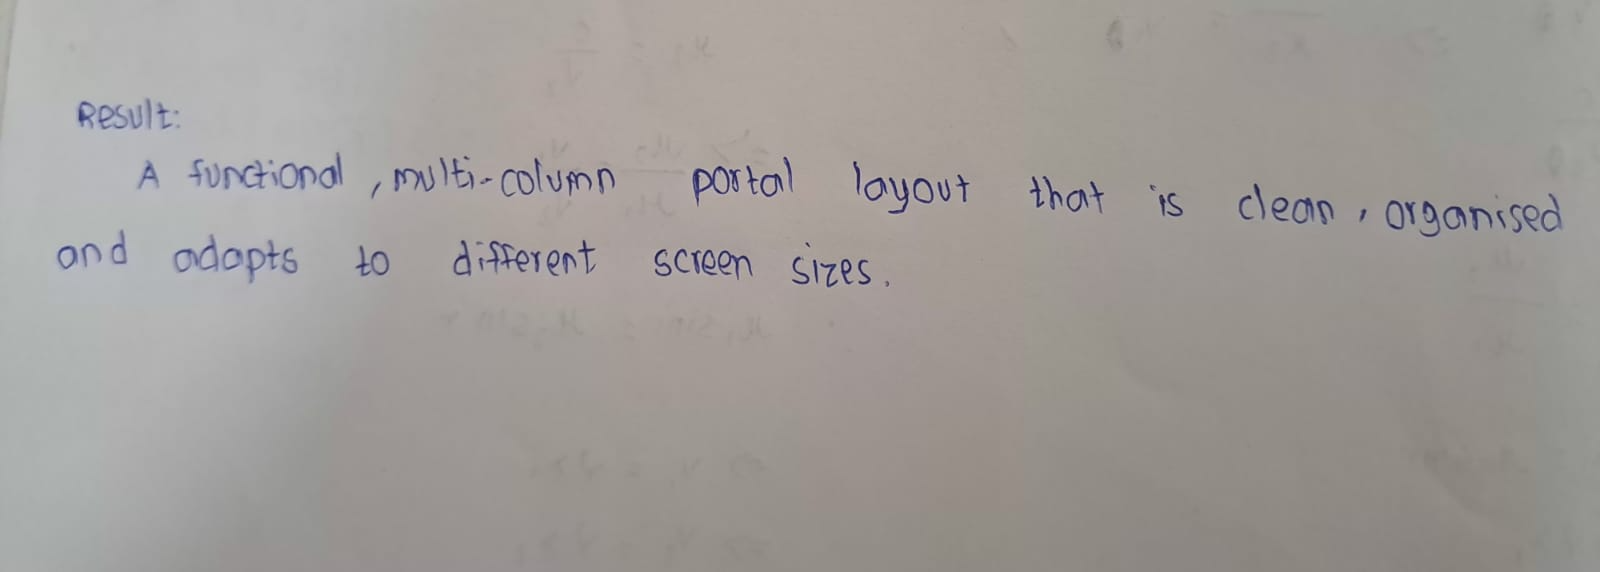 Result:
A functional, multi-column portal layout that is clean, organised
and adapts to different screen sizes.